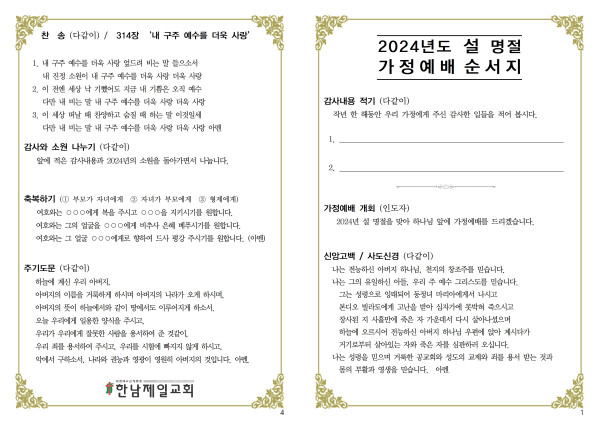 찬 송 (다같이) / 314장 '내 구주 예수를 더욱 사랑'
1. 내 구주 예수를 더욱 사랑 엎드려 비는 말 들으소서
내 진정 소원이 내 구주 예수를 더욱 사랑 더욱 사랑
2. 이 전엔 세상 낙 기뻤어도 지금 내 기쁨은 오직 예수
다만 내 비는 말 내 구주 예수를 더욱 사랑 더욱 사랑
3. 이 세상 떠날 때 찬양하고 숨질 때 하는 말 이것일세
다만 내 비는 말 내 구주 예수를 더욱 사랑 더욱 사랑 아멘
감사와 소원 나누기 (다같이)
앞에 적은 감사내용과 2024년의 소원을 돌아가면서 나눕니다.
축복하기 (① 부모가 자녀에게 ② 자녀가 부모에게 ③ 형제에게)
여호와는 ○○○에게 복을 주시고 ○○○을 지키시기를 원합니다.
여호와는 그의 얼굴을 ○○○에게 비추사 은혜 베푸시기를 원합니다.
여호와는 그 얼굴 ○○○에게로 향하여 드사 평강 주시기를 원합니다. (아멘)
주기도문 (다같이)
하늘에 계신 우리 아버지,
아버지의 이름을 거룩하게 하시며 아버지의 나라가 오게 하시며,
아버지의 뜻이 하늘에서와 같이 땅에서도 이루어지게 하소서.
오늘 우리에게 일용한 양식을 주시고,
우리가 우리에게 잘못한 사람을 용서하여 준 것같이,
우리 죄를 용서하여 주시고, 우리를 시험에 빠지지 않게 하시고,
악에서 구하소서, 나라와 권능과 영광이 영원히 아버지의 것입니다. 아멘.
한남제일교회
4
2024년도 설 명절
가정예배 순서지
감사내용 적기 (다같이)
작년 한 해동안 우리 가정에게 주신 감사한 일들을 적어 봅시다.
1.
2.
가정예배 개회 (인도자)
2024년 설 명절을 맞아 하나님 앞에 가정예배를 드리겠습니다.
신앙고백 / 사도신경 (다같이)
나는 전능하신 아버지 하나님, 천지의 창조주를 믿습니다.
나는 그의 유일하신 아들, 우리 주 예수 그리스도를 믿습니다.
그는 성령으로 잉태되어 동정녀 마리아에게서 나시고
본디오 빌라도에게 고난을 받아 십자가에 못박혀 죽으시고
장사된 지 사흘만에 죽은 자 가운데서 다시 살아나셨으며
하늘에 오르시어 전능하신 아버지 하나님 우편에 앉아 계시다가
거기로부터 살아있는 자와 죽은 자를 심판하러 오십니다.
나는 성령을 믿으며 거룩한 공교회와 성도의 교제와 죄를 용서 받는 것과
몸의 부활과 영생을 믿습니다. 아멘
1